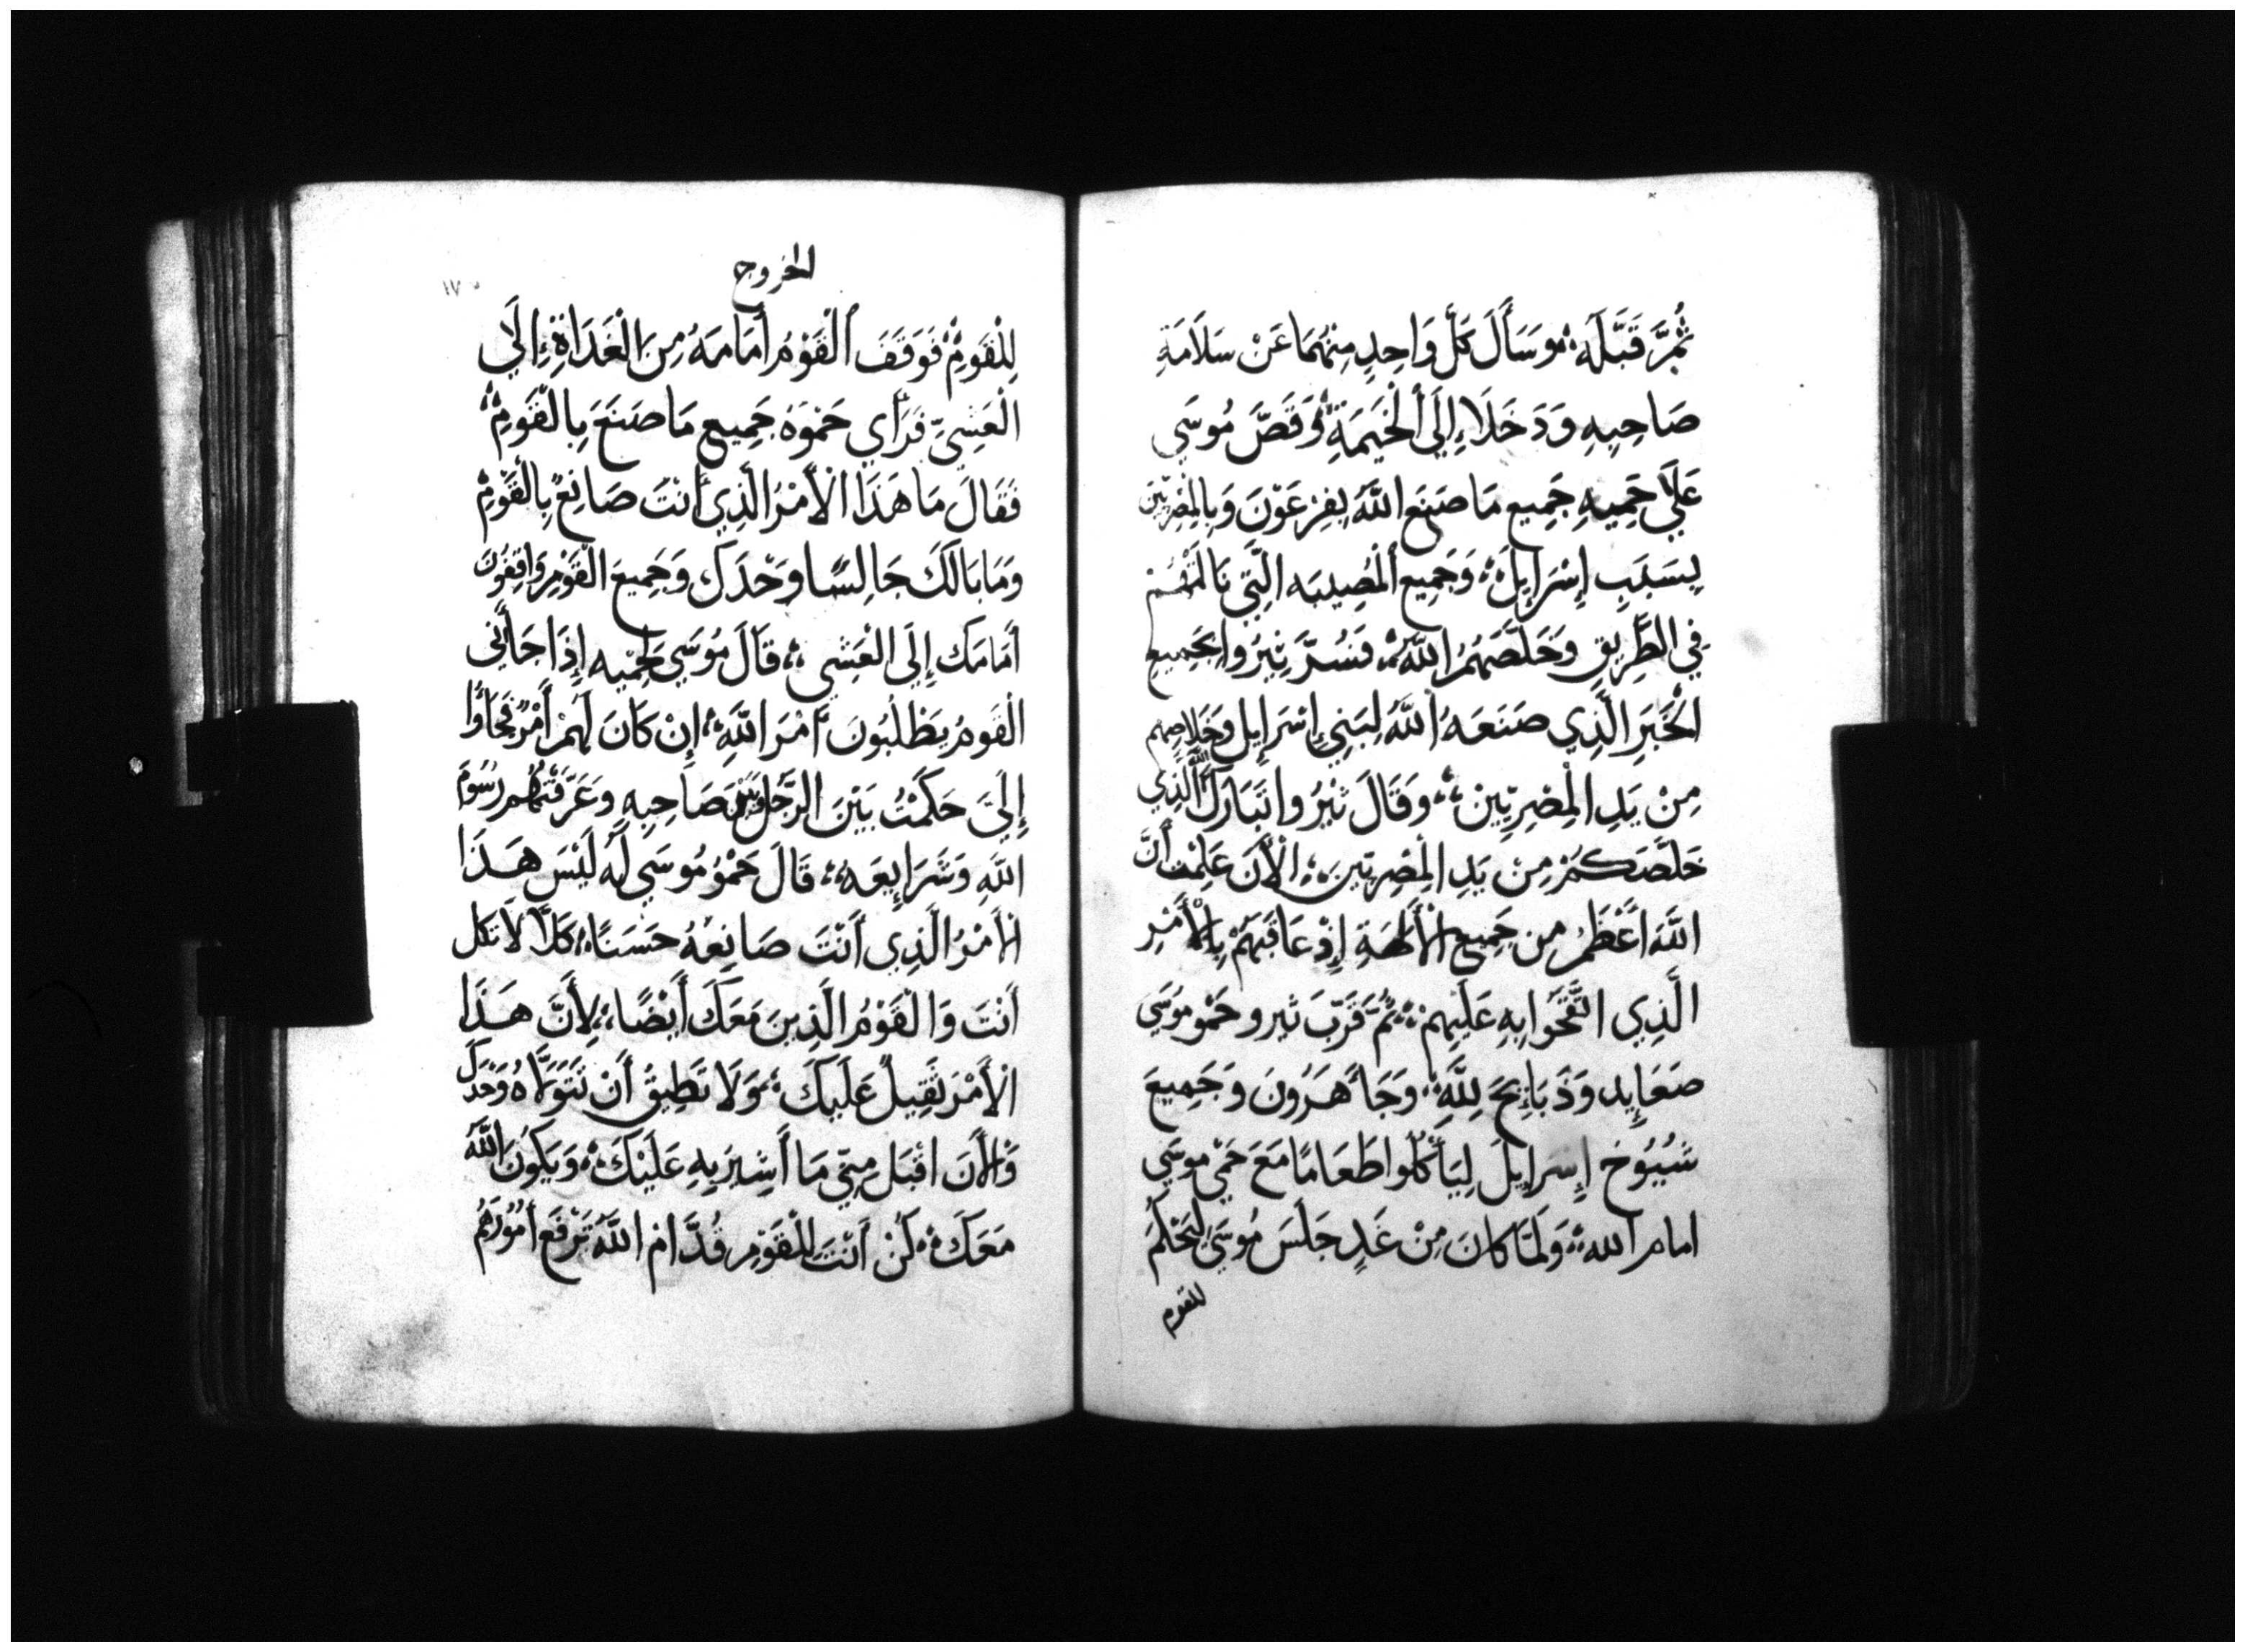 ثُمَّ قَبَّلَهُ ؞ وَسَأَلَ كُلَّ وَاحِدٍ مِنْهُمَا عَنْ سَلَامَةِ
صَاحِبِهِ وَدَخَلَاءِ إِلَى الْخَيمَةِ ؞ وَقَصَّ مُوسَي
عَلَي حَمِيهِ جَمِيع مَا صَنَعَ اللَّهُ بِفِرْعَوْنَ وَبِالْمِصْرِيّينَ
بِسَبَبِ إِسْرَايِلَ ؞ وَجَمِيع الْمُصِيبَه الَّتِي نَالَتْهُمْ
فِي الطَّرِيقِ وَخَلَّصَهُمُ اللَّهُ ؞ فَسُرَّ يثرُوا بِجَمِيعِ
الْخَبَرِ الَّذِي صَنَعَهُ اللَّهُ لِبَنِي إِسْرَايِل وَخَلَاصِهِم
مِنْ يَدِ الْمِصْرِيّينَ ؞ وَقَالَ يثْرُوا تَبَارَكَ اللَّه الَّذِي
خَلَّصَكُمْ مِنْ يَدِ الْمِصْرِيّينَ ؞ الْأَنَ عَلِمْتُ أَنَّ
اللَّهَ أَعْظَمُ مِن جَمِيع الْأَلِهَةِ إِذْ عَاقَبَهُمْ بِالْأَمْرِ
الَّذِي اتَّقَحَوا بِهِ عَلَيهِمْ ؞ ثُمَّ قَرَّبَ يثرو حَمُو مُوسَي
صَعَايِد وَذَبَايِحَ لِلَّهِ ؞ وَجَأَ هَرُونَ وَجَمِيعَ
شُيُوخ إِسْرَايِلَ لِيَأْكُلُوا طَعَامًا مَعَ حَمِي مُوسَي
امام الله ؞ وَلَمَّا كَانَ مِنْ غَدٍ جَلَسَ مُوسَي لِيَحْكُمَ
للقوم
الخروج
١٧٠
لِلْقَومِ ؞ فَوَقَفَ الْقَوْمُ أَمَامَهُ مِنَ الْغَدَاةِ إِلَي
الْعَشِيِّ فَرَأَي حَمُوهُ جَمِيع مَا صَنَعَ بِالْقَومِ ؞
فَقَالَ مَا هَذَا الْأَمْرُ الَّذِي أَنْتَ صَانِعٌ بِالْقَوْمِ
وَمَا بَالَكَ جَالِسًا وَحْدَكَ وَجَمِيعَ الْقَوْمِ وَاقِفُونَ
أَمَامَك إِلَى الْعَشِي ؞ قَالَ مُوسَي لِحَمِيه إِذَا جَأَنِي
الْقَومُ يَطْلُبُونَ أَمْرَ اللَّهِ ؞ إِنْ كَانَ لَهُمْ أَمْرٌ فَجَأوُا
إِلَيَّ حَكَمْتُ بَيْنَ الرَّجُلِ وَبَيْنَ صَاحِبِهِ وَعَرَّفْتُهُم رُسُومَ
اللَّهِ وَشَرَايِعَهُ ؞ قَالَ حَمُو مُوسَي لَه لَيْسَ هَذَا
الأَمْرُ الَّذِي أَنْتَ صَانِعُهُ حَسَنًا ؞ كَلَّا لَا تَكل
أَنْتَ وَالْقَوْمُ الَّذِينَ مَعَكَ أَيْضًا ؞ لِأَنَّ هَذَا
الْأَمْرَ ثَقِيلٌ عَلَيكَ ؞ وَلَا تَطِيقُ أَنْ تَتَوَلَّاهُ وَحْدَكَ
وَالْأَنَ اقْبَل مِنِّي مَا أَشِيرُ بِهِ عَلَيْكَ ؞ وَيَكُونُ اللَّهُ
مَعَكَ ؞ كُنْ أَنْتَ لِلْقَوْمِ قُدَّامَ اللَّهِ تَرْفَع أُمُورَهُمْ